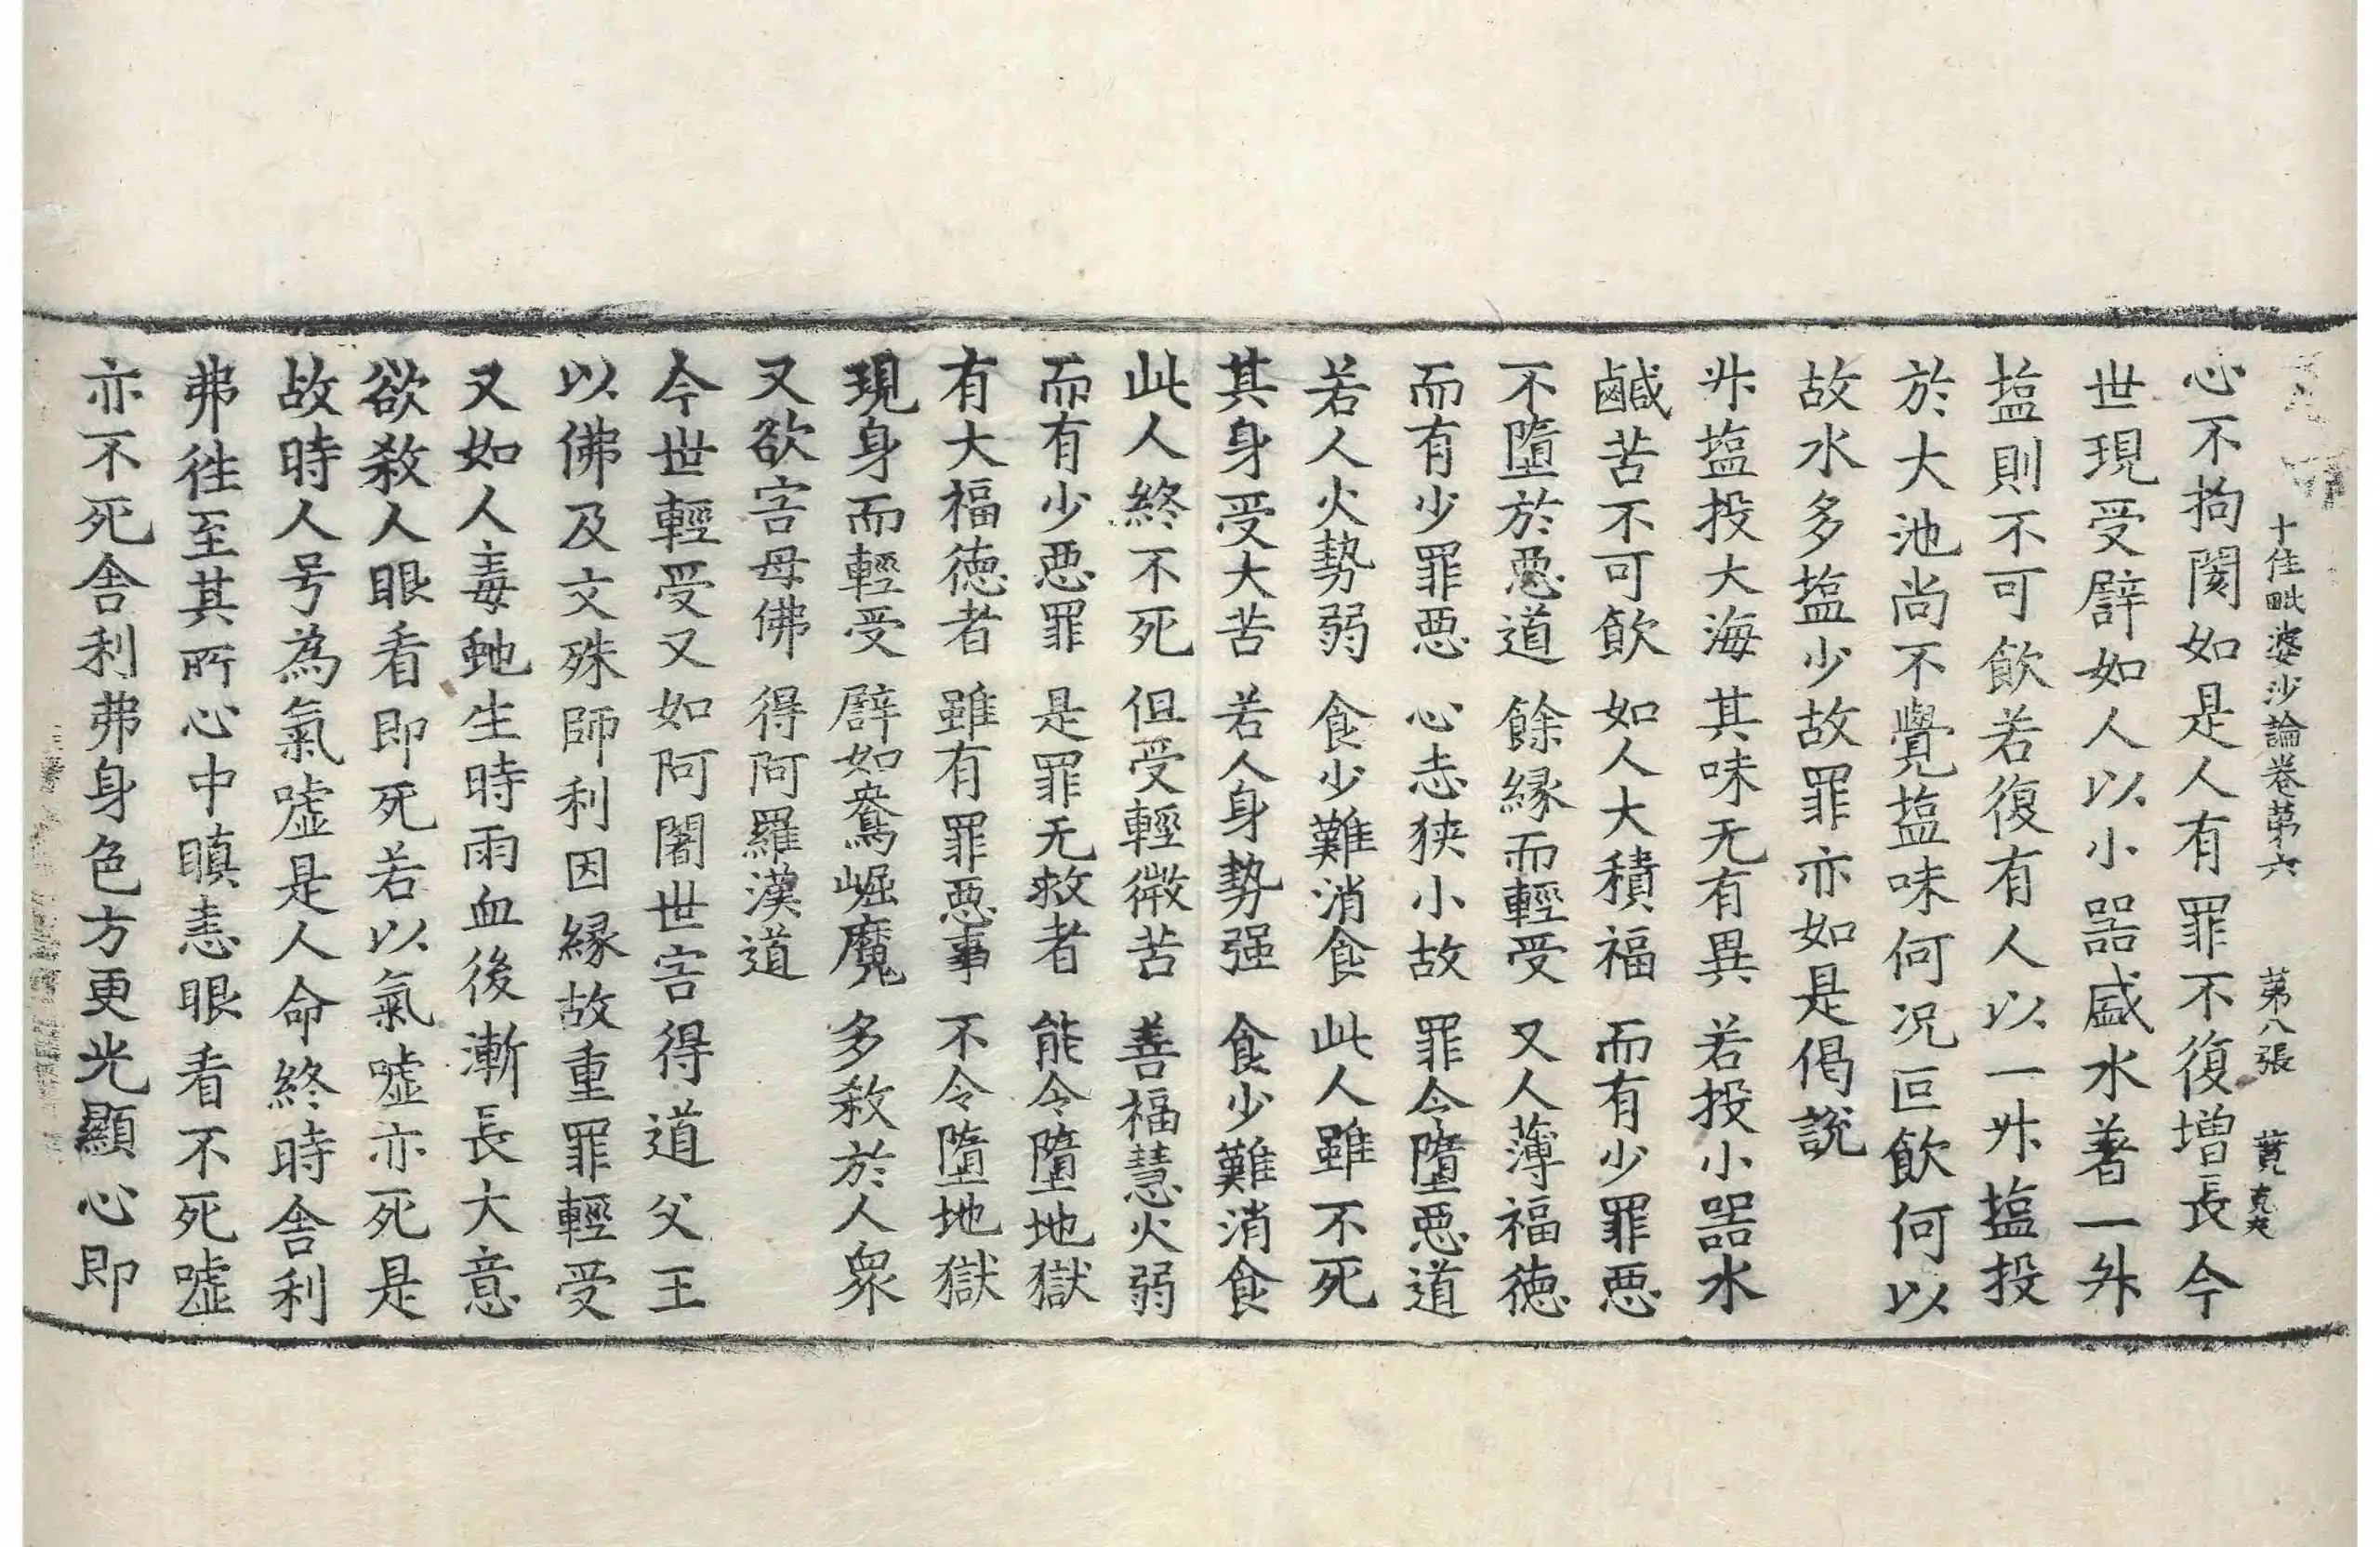 十住毗婆沙論卷第六　第八張　蕡
心不拘閡如是人有罪不復增長今
世現受譬如人以小器盛水著一升
塩則不可飲若復有人以一升塩投
於大池尚不覺塩味何况叵飲何以
故水多塩少故罪亦如是偈說
升塩投大海　其味无有異　若投小器水
鹹苦不可飲　如人大積福　而有少罪惡
不墮於惡道　餘緣而輕受　又人薄福德
而有少罪惡　心志狹小故　罪令墮惡道
若人火勢弱　食少難消食　此人雖不死
其身受大苦　若人身勢强　食少難消食
此人終不死　但受輕微苦　善福慧火弱
而有少惡罪　是罪无救者　能令墮地獄
有大福德者　雖有罪惡事　不令墮地獄
現身而輕受　譬如鴦崛魔　多殺於人衆
又欲害母佛　得阿羅漢道
今世輕受又如阿闍世害得道父王
以佛及文殊師利因緣故重罪輕受
又如人毒虵生時雨血後漸長大意
欲殺人眼看即死若以氣噓亦死是
故時人号為氣噓是人命終時舍利
弗徃至其所心中瞋恚眼看不死噓
亦不死舍利弗身色方更光顯心即